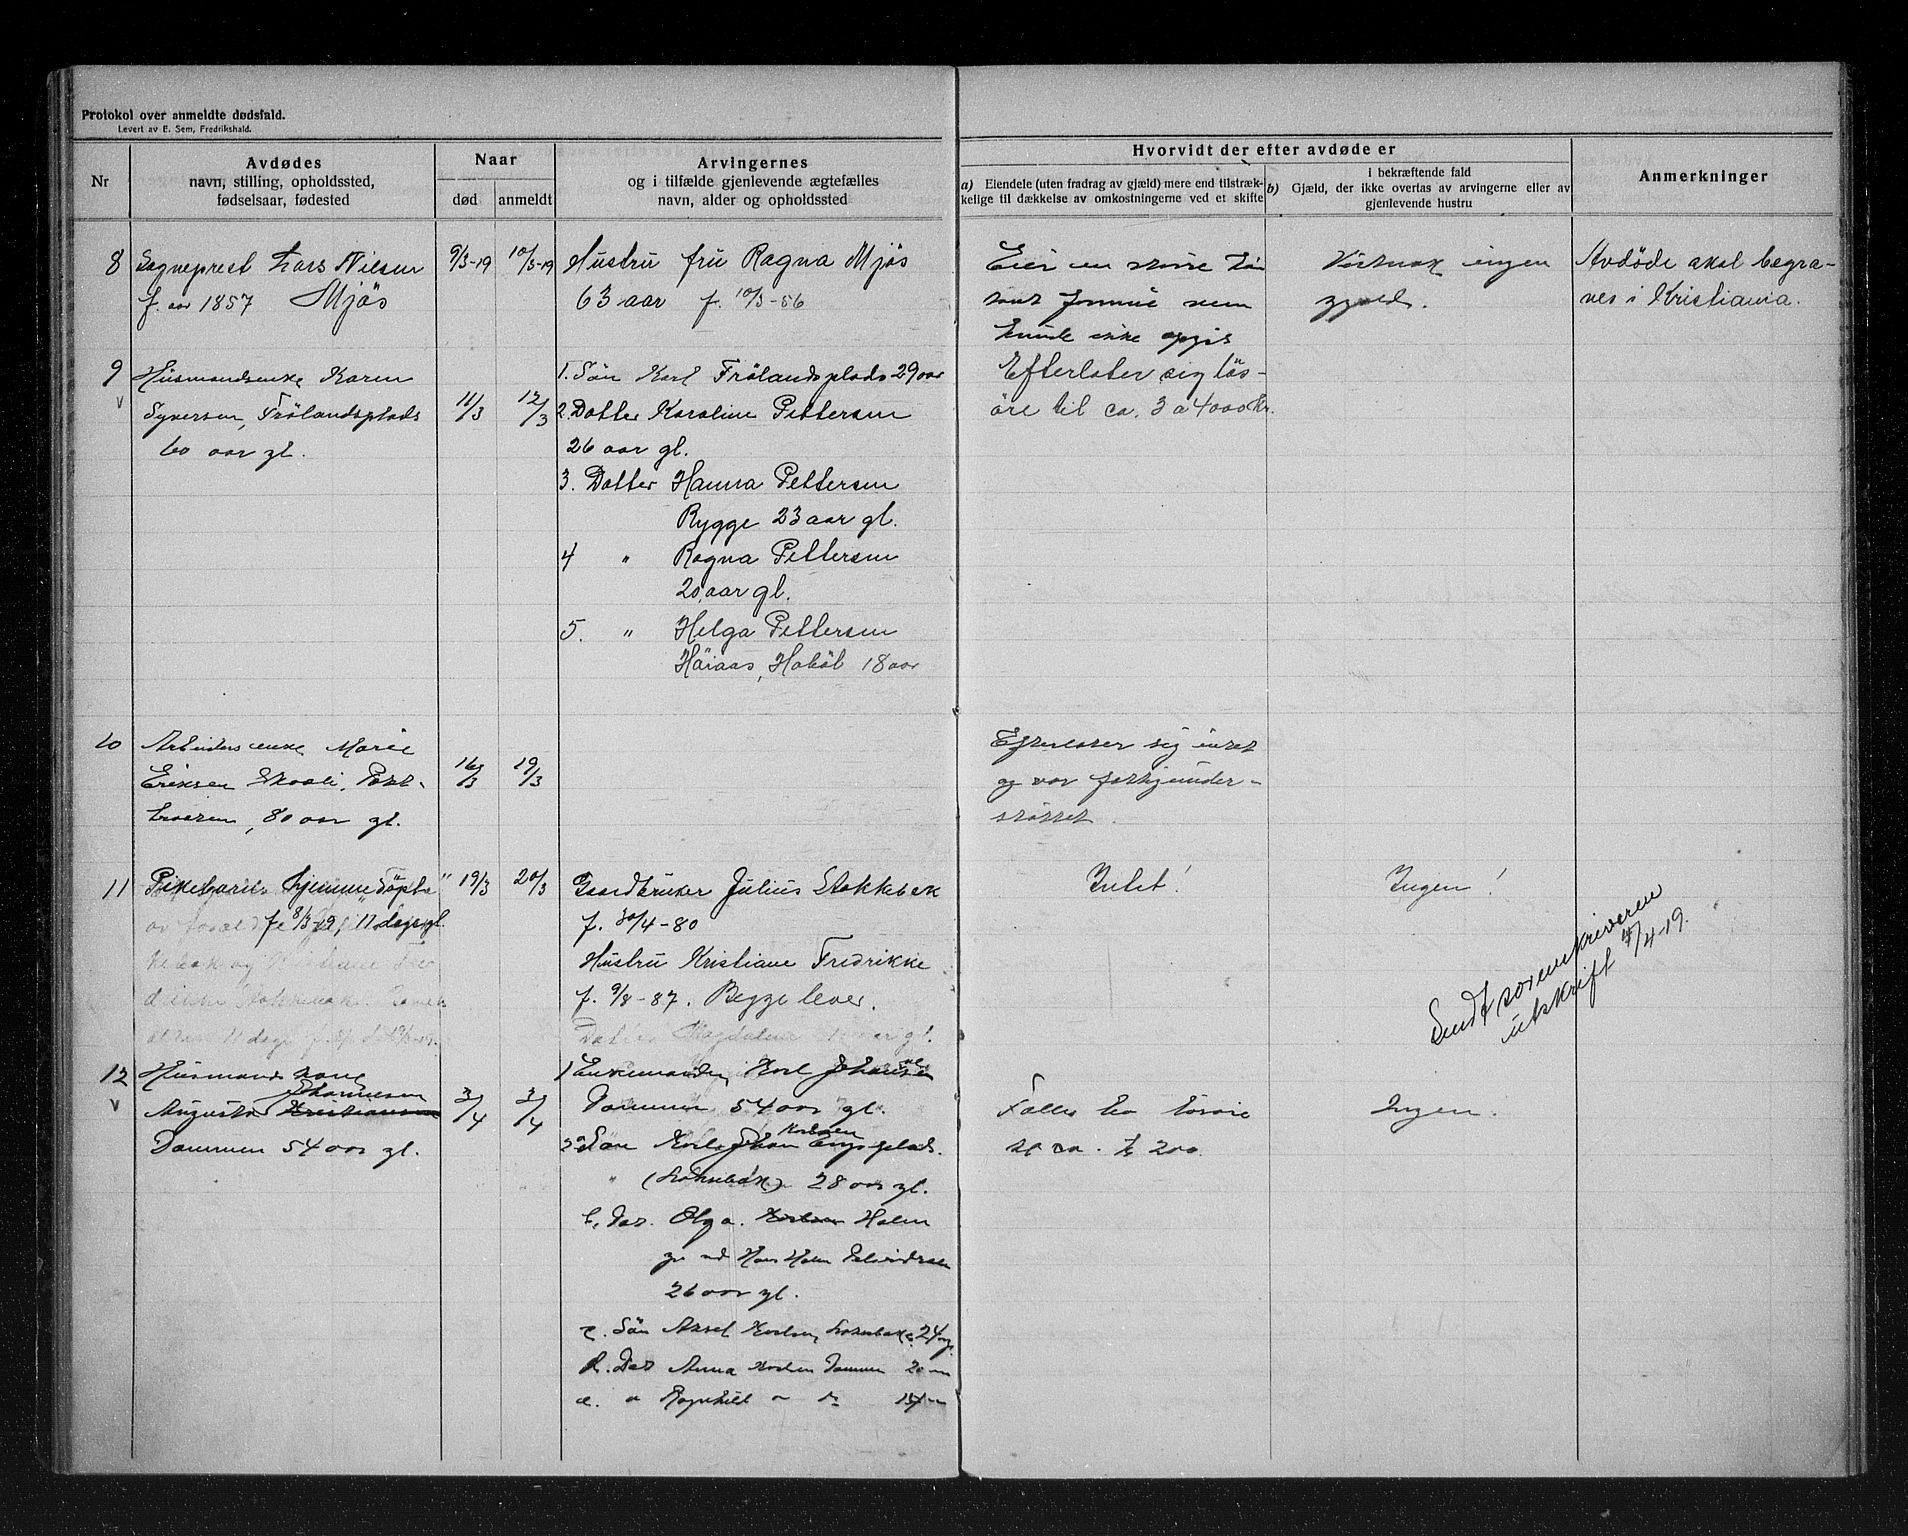 Protokol over anmeldte dødsfald.
Levert av E. Sem, Fredrikshald.
Nr
Avdødes
navn, stilling, opholdssted,
fødselsaar, fødested
Naar
død
anmeldt
Arvingernes
og i tilfælde gjenlevende ægtefælles
navn, alder og opholdssted
Hvorvidt der efter avdøde er
a) Eiendele (uten fradrag av gjæld) mere end tilstræk-
kelige til dækkelse av omkostningerne ved et skifte
i bekræftende fald
b) Gjæld, der ikke overtas av arvingerne eller av
gjenlevende hustru
Anmerkninger
8
Sogneprest Lars Nilsen
f. aar 1857 Mjös
9/3-19
10/3-19
Hustru fru Ragna Mjös
63 aar f. 10/3-56
Eier en större
som
kunde ikke opgis
ingen
gjæld.
Avdöde skal begra-
ves i Kristiania.
9
Husmandsenke Karen
Syversen, Frölandsplads
60 aar gl.
11/3
12/3
1. Sön Karl Frölandsplads 29 aar
2. Datter Karoline Pettersen
26 aar gl.
3. Datter Hanna Pettersen
Rygge 23 aar gl.
4 " Ragna Pettersen
20 aar gl.
5. " Helga Pettersen
Höiaas, Haböl 18 aar
Efterlater sig lös-
öre til ca. 3 a 4000 Kr.
10
Arbeiders enke Marie
Eriksen Skoali,
80 aar gl.
16/3
19/3
Efterlater sig intet
og var forsorgsunder-
støttet.
11
Pikebarn hjemmedöpt
f. 8/3-19, 11 dage gl.
19/3
20/3
Gaardbruker Julius Stokkebæk
f. 30/4-80
Hustru Kristiane Fredrikke
f. 9/8-87. Begge lever.
Intet!
Ingen!
Sendt sorenskriveren
utskrift 4/4-19.
12
Husmands kone
Johannesen
Augusta Kristiansen
Dammen 54 aar gl.
3/4
3/4
1 Enkemanden Karl Johansen
Dammen 54 aar gl.
2a Sön Karl Johan Karlsen
" 28 aar gl.
b. Dat. Olga Karlsen Holm
gift med Hans Holm
26 aar gl.
c. Sön Aksel Karlsen 24
d. Dat Anna Karlsen Dammen 20
e. " Ragnhild " do
Fælles bo
ca. kr 200
Ingen.